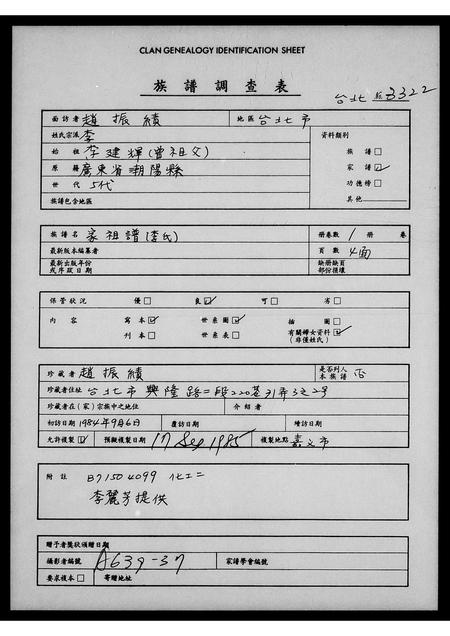 CLAN GENEALOGY IDENTIFICATION SHEET
族譜調查表
台北 3322
面訪者 趙振績 地區 台北市
姓氏宗派 李 資料類別
始祖 李建輝(曾祖父) 族譜□
原籍 廣東省潮陽縣 家譜☑
世代 5代 功德榜□
族譜包含地區 其他
族譜名 家祖譜(李氏) 册卷數 1 册 卷
最新版本編纂者 頁數 4面
最新出版年份或序跋日期 缺册缺頁部份損壞
保管狀況 優□ 良☑ 可□ 劣□
內容 寫本☑ 世系圖☑ 插圖□
刊本□ 世系表□ 有關婦女資料☑(非僅姓氏)
珍藏者 趙振績 是否列入本族譜 否
珍藏者住址 台北市興隆路二段220巷31弄3之2号
珍藏者在(家)宗族中之地位 介紹者
初訪日期 1984年9月6日 覆訪日期 續訪日期
允許複製☑ 預擬複製日期 17 Sep 1985 複製地點 嘉义市
附註 B71504099 化工二
李麗芳提供
贈予者獎狀頒贈日期
攝影者編號 A639-37 家譜學會編號
要求複本□ 寄贈地址